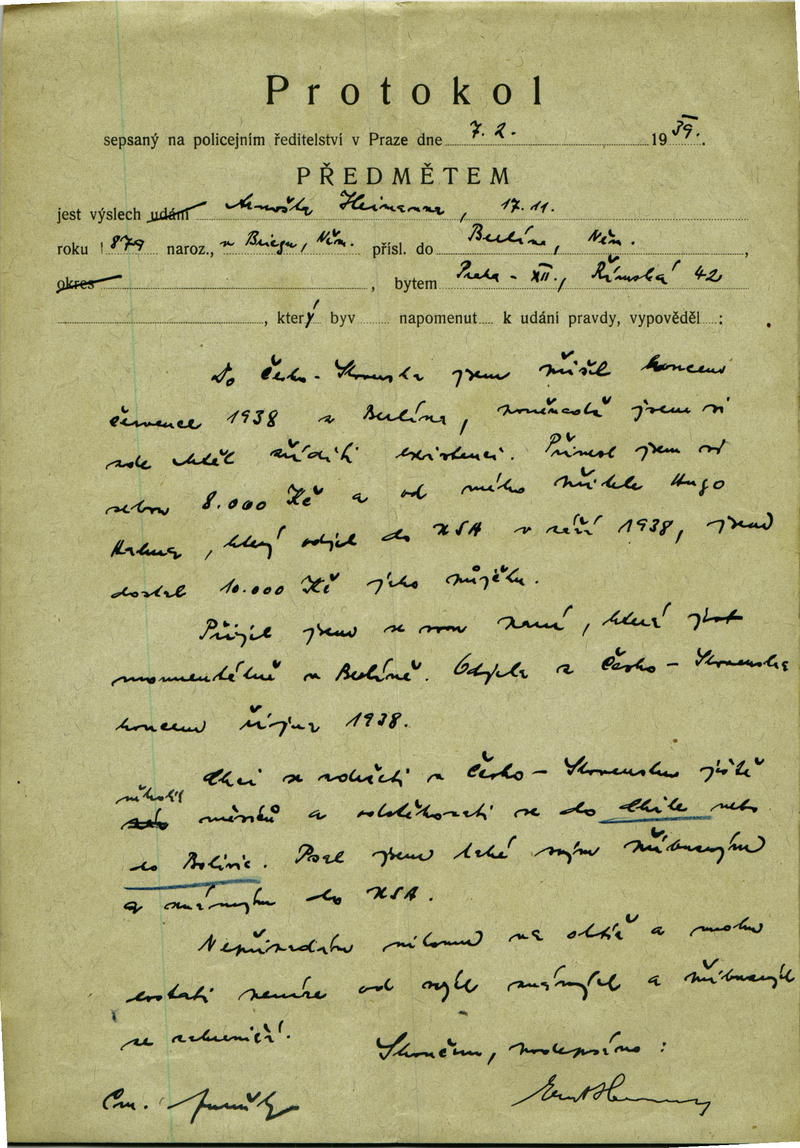 Protokol
sepsaný na policejním ředitelství v Praze dne 7. 2. 1939.
PŘEDMĚTEM
jest výslech udání Arnošta Heimanna, 17.11.
roku 1879 naroz., v Briegu, Něm. přísl. do Berlína, Něm.,
okres , bytem Praha - XII., Římská 42
, který byv napomenut k udání pravdy, vypověděl :
Do Česko-Slovenska jsem přišel koncem
července 1938 z Berlína, poněvadž jsem si
zde chtěl zříditi existenci. Přinesl jsem si
sebou 8.000 Kč a od mého přítele Hugo
, který odjel do USA v září 1938, jsem
dostal 10.000 Kč jako půjčku.
Přijel jsem se svou paní, která jest
momentálně v Berlíně. Odjela z Česko-Slovenska
koncem října 1938.
Chci se zdržeti v Česko-Slovensku ještě
několik
měsíců a odstěhovati se do Chile nebo
do Bolivie. Psal jsem také svým příbuzným
a známým do USA.
Nepřipadám nikomu na obtíž a mohu
dostati peníze od mých známých a příbuzných
ze zahraničí.
Skončeno, podepsáno :